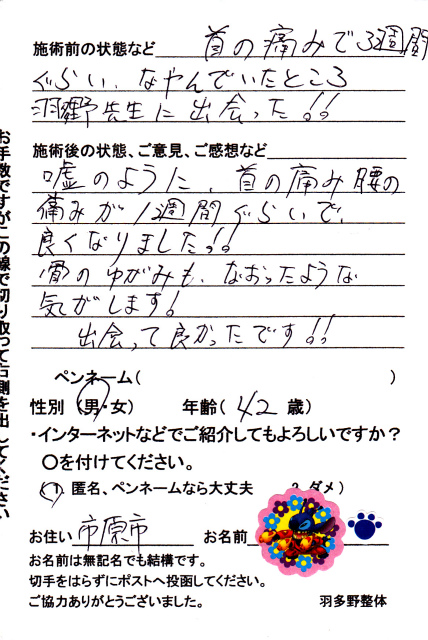 施術前の状態など 首の痛みで3週間
ぐらい、なやんでいたところ
羽野先生に出会った!!
施術後の状態、ご意見、ご感想など
嘘のように、首の痛み腰の
痛みが1週間ぐらいで、
良くなりました!!
骨のゆがみも、なおったような
気がします!
出会って良かったです!!
ペンネーム( )
性別(男・女) 年齢(42歳)
・インターネットなどでご紹介してもよろしいですか?
〇を付けてください。
(1. 匿名、ペンネームなら大丈夫 2. ダメ)
お住い 市原市 お名前
お名前は無記名でも結構です。
切手をはらずにポストへ投函してください。
ご協力ありがとうございました。 羽多野整体
お手数ですがこの線で切り取って右側を出してください